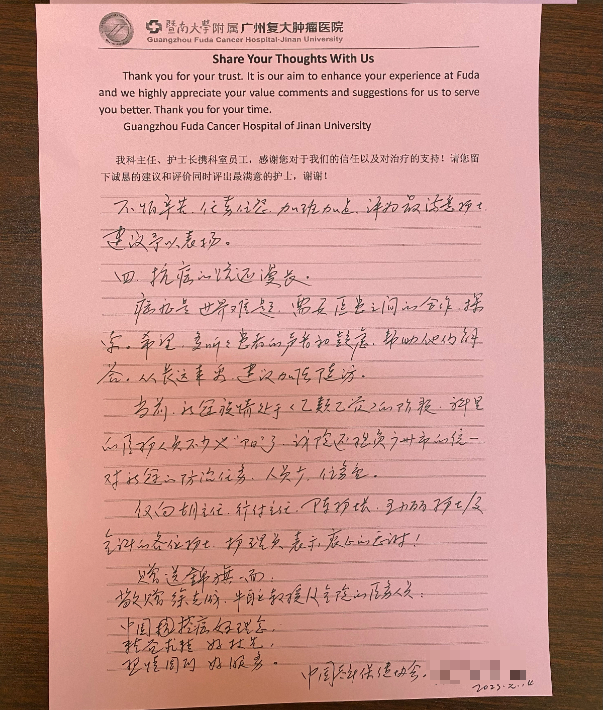 暨南大學附属广州复大肿瘤医院
Guangzhou Fuda Cancer Hospital-Jinan University
Share Your Thoughts With Us
Thank you for your trust. It is our aim to enhance your experience at Fuda
and we highly appreciate your value comments and suggestions for us to serve
you better. Thank you for your time.
Guangzhou Fuda Cancer Hospital of Jinan University
我科主任、护士长携科室员工，感谢您对于我们的信任以及对治疗的支持！请您留
下诚恳的建议和评价同时评出最满意的护士，谢谢！
不怕辛苦、任劳任怨、加班加点，评为最满意护士
建议予以表扬。
四、抗癌的路还漫长。
癌症是世界难题，需要医患之间的合作、探
索。希望，多听听患者的声音和，帮助他们解
答。从长远来看，建议加强随访。
当前，新冠疫情处于《乙类乙管》的阶段，科里
的医护人员不少又“阳”了，该院还担负广州市的统一
对新冠的防治任务，人员少、任务重。
仅向胡主任、主任、陈护士长、王护士及
全科的各位护士、护理员表示衷心的感谢！
赠送锦旗一面：
敬赠徐克成、牛立教授及全院的医务人员：
中国抗癌好理念，
好技术，
热情周到 好服务。
中国保健协会
2023.2.14